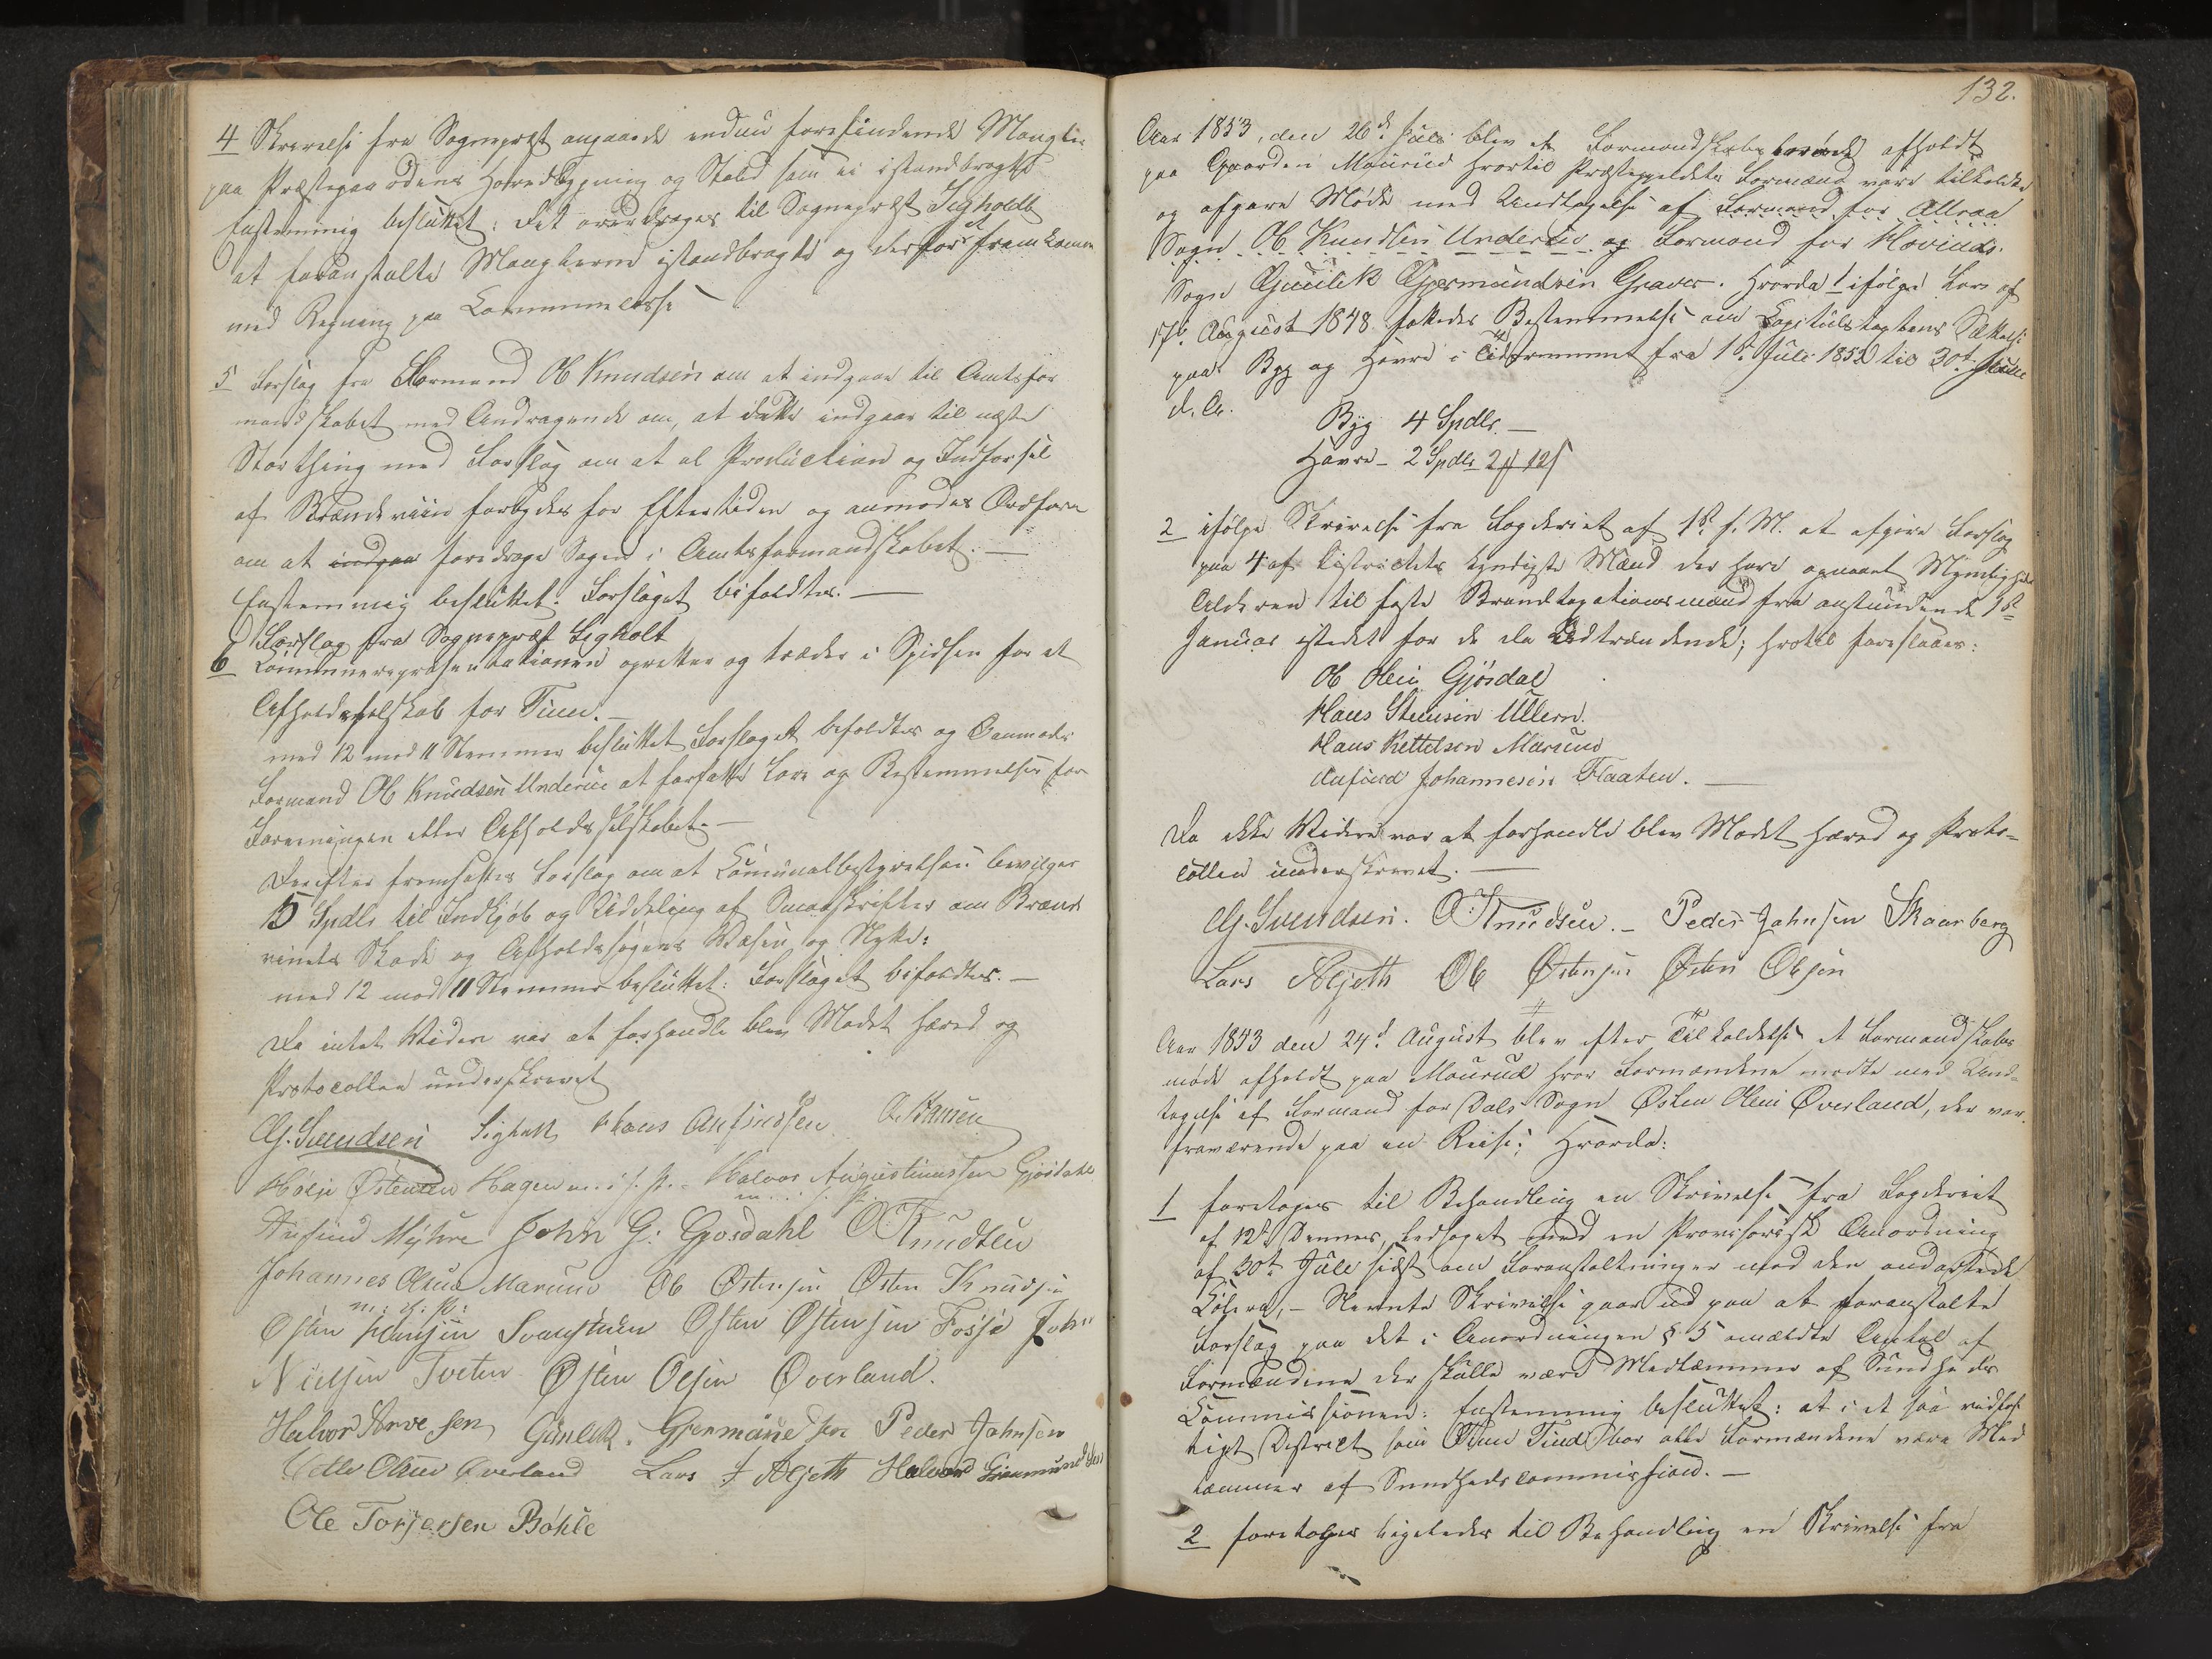 4 Skrivelse fra Sognepræst angaaende endnu forefindende Mangler
paa Præstegaardens Hovedbygning og Stald som ei istandbragte
Enstemmig besluttet: Det overdrages til Sognepræst Sigholt
at foranstalte Manglerne istandbragte og derfor at fremkomme
med Regning paa Communecasse
5 Forslag fra Formand Ole Knudsen om at indgaae til Amtsfor
mandskabet med Andragende om, at dette indgaar til næste
Storthing med Forslag om at al Production og Indførsel
af Brændeviin forbydes for Eftertiden og anmodes Ordføreren
om at indgaa foredrage Sagen i Amtsformandskabet. —
Enstemmig besluttet: Forslaget bifaldtes. —
6 Forslag fra Sognepræst Sigholt
Communerepræsentationen opretter og træder i Spidsen for et
Afholdsselskab for Tinn. —
med 12 mod 11 Stemmer besluttet Forslaget bifaldtes og Anmodes
Formand Ole Knudsen Underlie at forfatte Love og Bestemmelser for
Foreningen eller Afholdsselskabet. —
Derefter fremsattes Forslag om at Communalbestyrelsen bevilger
15 Spdlr til Indkjøb og Uddeling af Smaaskrifter om Brænde
vinets Skade og Afholdssagens Væsen og Nytte:
med 12 mod 11 Stemmer besluttet: Forslaget bifaldtes. —
Da intet Videre var at forhandle blev Mødet hævet og
Protocollen underskrevet
G. Svendsen Sigholt Hans Anfindsen O. Hansen
Hølje Østensen Hagen m. i. f. P. - Halvor Augustinussen Gjøsdahl
m. i. f. P.
Anfind Myhre John G: Gjøsdahl O Knudsen
Johannes Olsen Marumb Ole Østensen Østen Knudsen
m: i. f. P:
Østen Hansen Svartuen Østen Østensen Fosse John
Nielsen Tveten Østen Olsen Øverland.
Halvor Arvesen Gunlek. Gjermundsen Peder Johnsen
Olsen Øverland Lars Aljeth Halvord Gjermundsen
Ole Torjersen Bøhle
132.
Aar 1853, den 26de Juli blev et Formandskabsmøde afholdt
paa Gaarden Maurud hvortil Præstegjeldets Formænd vare tilkaldte
og afgave Møde med Undtagelse af Formand for Attraa
Sogn Ole Knudsen Underlie og Formand for Hovinds
Sogn Gunlek Gjermundsen Graver. Hvorda 1 ifølge Lov af
17de August 1848 fattedes Bestemmelse om Capitulstaxtens Sættelse
paa Byg og Havre i Tidsrummet fra 1ste Juli 1852 til 30te Juni
d. A.
Byg 4 Spdlr. —
Havre - 2 Spdlr 2 ß 12 ß
2 ifølge Skrivelse fra Fogderiet af 1ste f. M. at afgive Forslag
paa 4 af Districtets kyndigste Mænd der have opnaaet Myndigheds
Alderen til faste Brandtaxationsmænd fra anstundende 1ste
Januar istedet for de da Udtrædende; hvortil foreslaaes:
Ole Olsen Gjøsdal
Hans Steensen Ullern.
Hans Kittelsen Marumb
Anfind Johannesen Flaaten. —
Da ikke Videre var at forhandle blev Mødet hævet og Proto-
collen underskrevet. —
G. Svendsen. O Knudsen. - Peder Johnsen Skaarberg
Lars Aljeth Ole Østensen Østen Olsen
Aar 1853 den 24de August blev efter Tilkaldelse et Formandskabs
møde afholdt paa Maurud hvor Formændene mødte med Und-
tagelse af Formand for Dals Sogn Østen Olsen Øverland, der var
fraværende paa en Reise; Hvorda:
1 foretoges til Behandling en Skrivelse fra Fogderiet
af 12te Dennes, ledsaget med en Provisorisk Anordning
af 30te Juli sidst om Foranstaltninger mod den ondartede
Cholera, - Nævnte Skrivelse gaar ud paa at foranstalte
Forslag paa det i Anordningen § 5 omældte Antal af
Formændene der skulle være Medlemmer af Sundheds
Commissionen: Enstemmig besluttet: at i et saa vidtløf
tigt District som Øvre Tind bør alle Formændene være Med
lemmer af Sundhedscommission. —
2 foretoges ligeledes til Behandling en Skrivelse fra